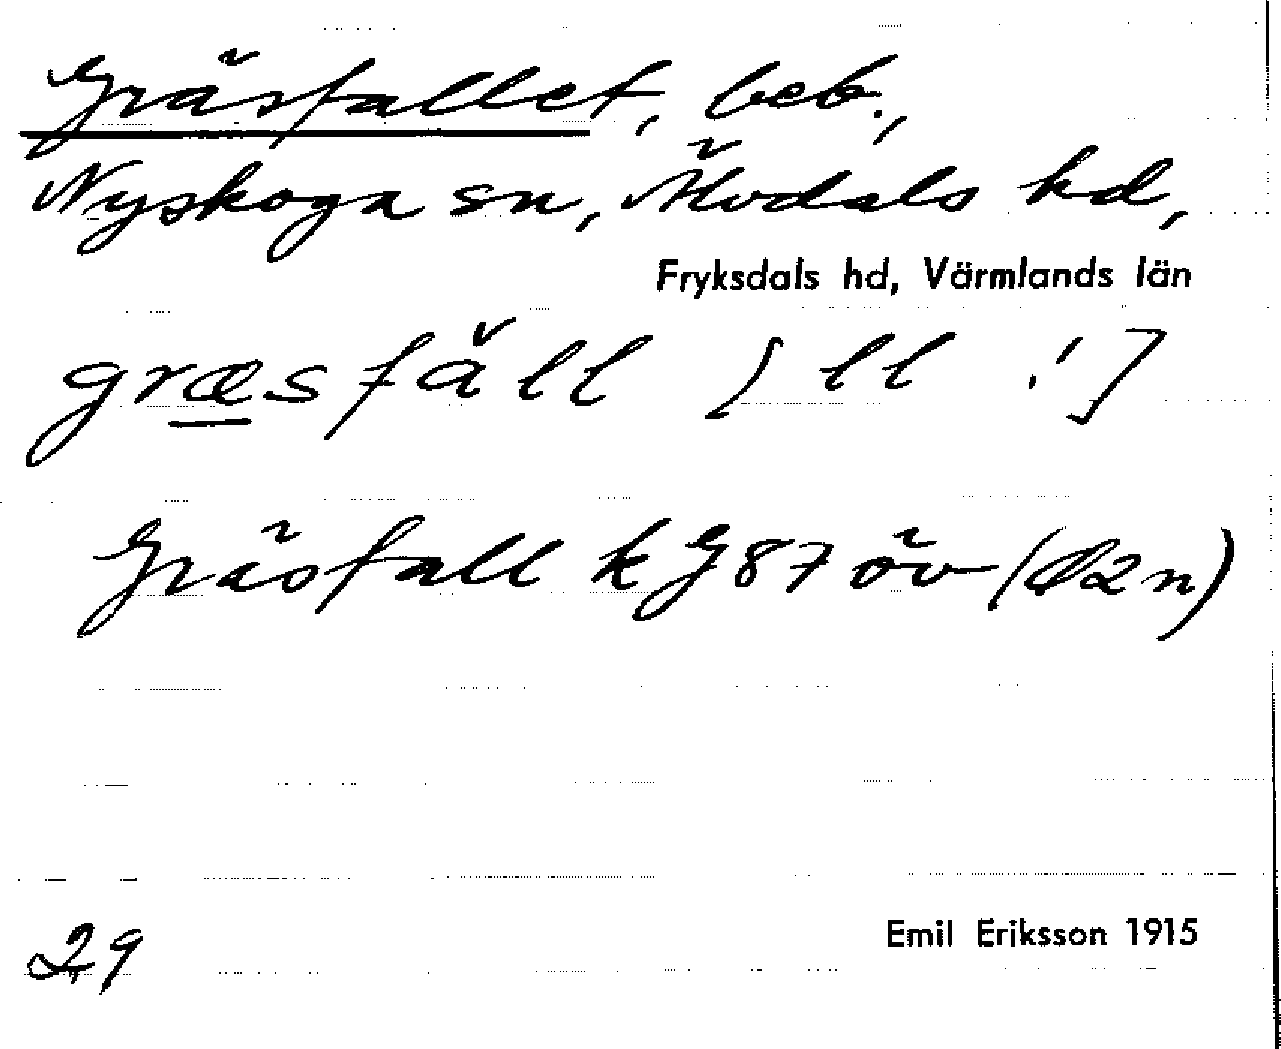 Gräsfallet, beb.,
Nyskoga sn, Älvdals hd,
Fryksdals hd, Värmlands län
græsfäll [ll !]
Gräsfall k G87 öv (Ø2n)
29
Emil Eriksson 1915